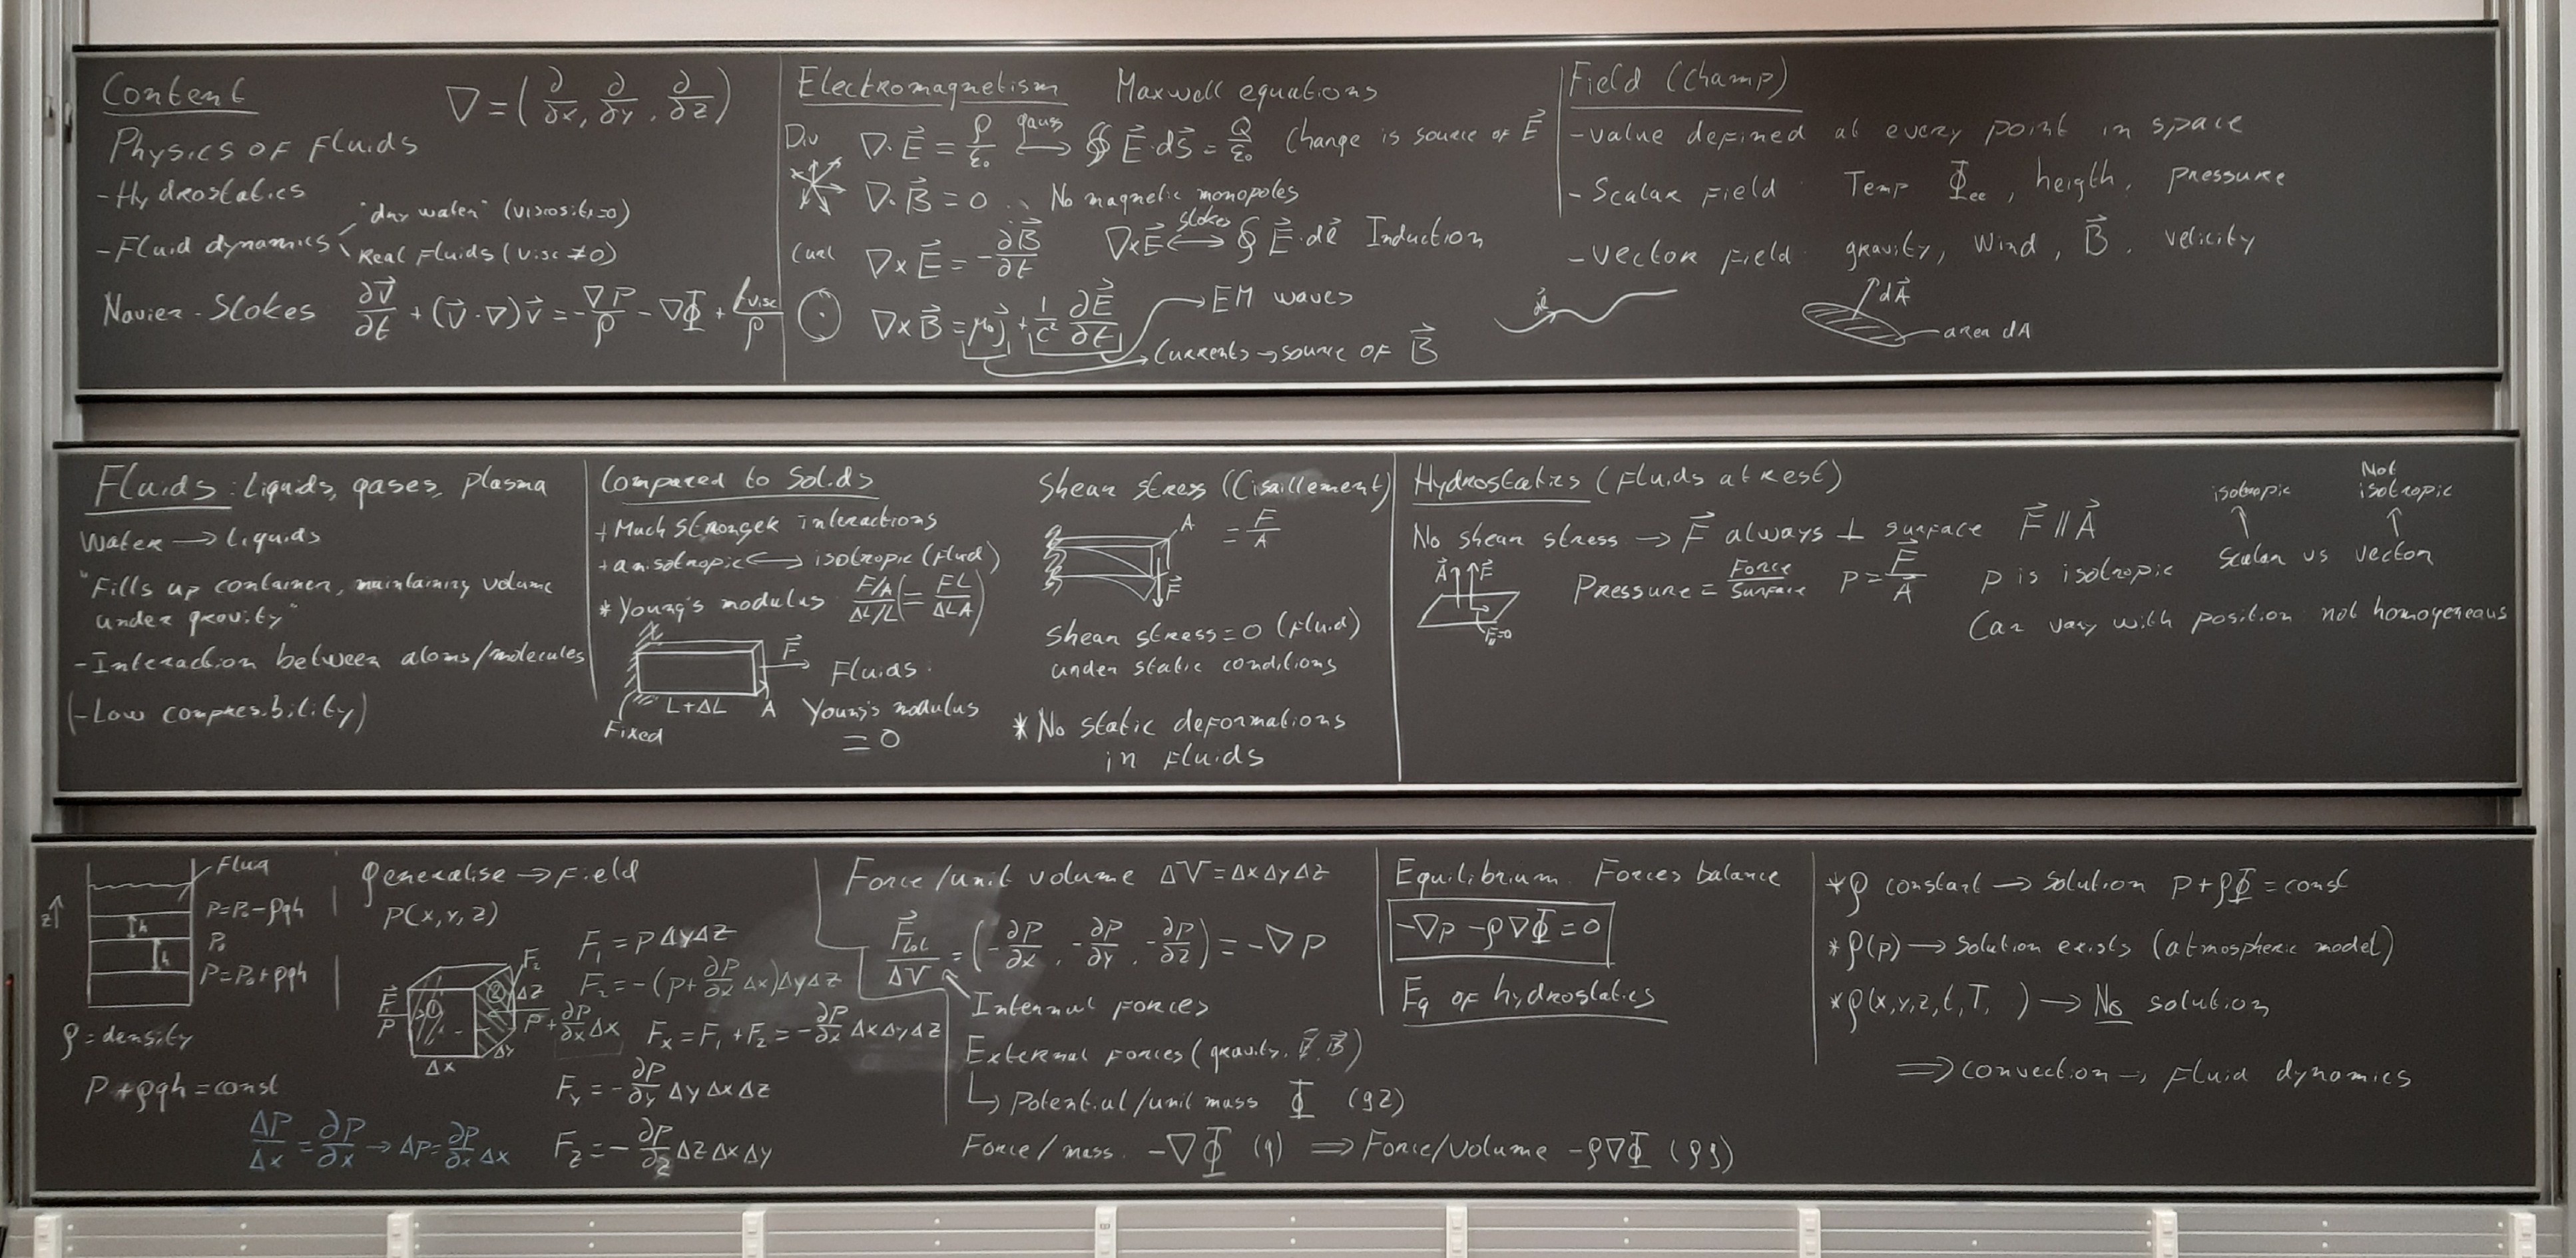 Content
∇ = (∂/∂x, ∂/∂y, ∂/∂z)
Physics of Fluids
- Hydrostatics
- Fluid dynamics
"dry water" (viscosity=0)
Real Fluids (visc ≠ 0)
Navier-Stokes ∂v⃗/∂t + (v⃗·∇)v⃗ = -∇P/ρ - ∇Φ + f visc/ρ
Electromagnetism Maxwell equations
Div ∇·E⃗ = ρ/ε₀ ⟷ gauss ∯ E⃗·dS⃗ = Q/ε₀ Charge is source of E⃗
∇·B⃗ = 0 No magnetic monopoles
Curl ∇×E⃗ = -∂B⃗/∂t ∇×E⃗ ⟷ stokes ∮ E⃗·dℓ⃗ Induction
∇×B⃗ = μ₀j⃗ + 1/c² ∂E⃗/∂t → EM waves
Currents → source of B⃗
Field (Champ)
- value defined at every point in space
- Scalar Field: Temp Φee, heigth, pressure
- Vector Field: gravity, Wind, B⃗, velicity
dℓ⃗
dA⃗
area dA
Fluids: liquids, gases, plasma
Water → liquids
"Fills up container, maintaining volume
under gravity"
- Interaction between atoms/molecules
(- Low compresibility)
Compared to Solids
+ Much stronger interactions
+ anisotropic ⟷ isotropic (Fluid)
* Young's modulus F/A / ΔL/L (= FL/ΔLA)
F⃗
L+ΔL
A
Fixed
Fluids:
Young's modulus
= 0
Shear stress (Cisaillement)
= F/A
A
F⃗
Shear stress = 0 (Fluid)
under static conditions
* No static deformations
in Fluids
Hydrostatics (Fluids at rest)
No shear stress → F⃗ always ⊥ surface F⃗ ∥ A⃗
A⃗ F⃗
F∥=0
Pressure = Force/Surface P = F⃗/A⃗ p is isotropic
isotropic
Not
isotropic
Scalar vs vector
Can vary with position not homogeneous
z↑
Fluid
P=P₀-ρgh
h
P₀
h
P=P₀+ρgh
ρ = density
P + ρgh = const
ΔP/Δx = ∂P/∂x → ΔP = ∂P/∂x Δx
generalise → Field
P(x, y, z)
F₁ = P Δy Δz
F₂ = -(P + ∂P/∂x Δx) Δy Δz
Fₓ = F₁ + F₂ = -∂P/∂x Δx Δy Δz
F_y = -∂P/∂y Δy Δx Δz
F_z = -∂P/∂z Δz Δx Δy
F⃗₁
P
①
②
F₂
Δz
P + ∂P/∂x Δx
Δy
Δx
Force/unit volume ΔV = Δx Δy Δz
F⃗tot/ΔV = (-∂P/∂x, -∂P/∂y, -∂P/∂z) = -∇P
Internal Forces
External Forces (gravity, E⃗, B⃗)
↳ Potential/unit mass Φ (gz)
Force/mass. -∇Φ (g) ⟹ Force/Volume -ρ∇Φ (ρg)
Equilibrium Forces balance
-∇p - ρ∇Φ = 0
Eq of hydrostatics
* ρ constant → Solution P + ρΦ = const
* ρ(p) → Solution exists (atmospheric model)
* ρ(x,y,z,t,T, ) → No solution
⟹ convection → Fluid dynamics